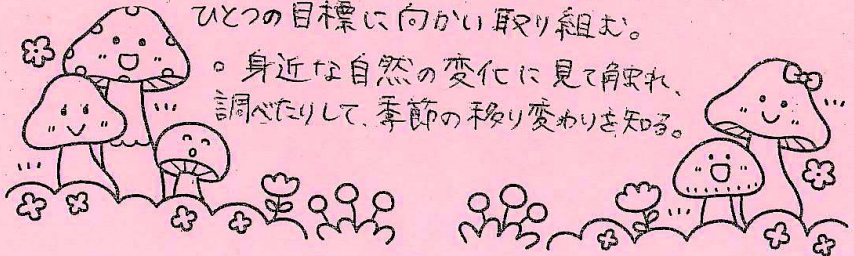 ひとつの目標に向かい取り組む。
。身近な自然の変化に見て触れ、
調べたりして、季節の移り変わりを知る。